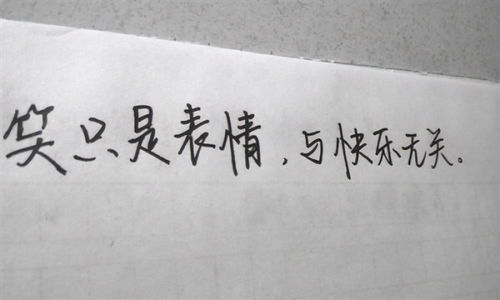 笑只是表情，与快乐无关。